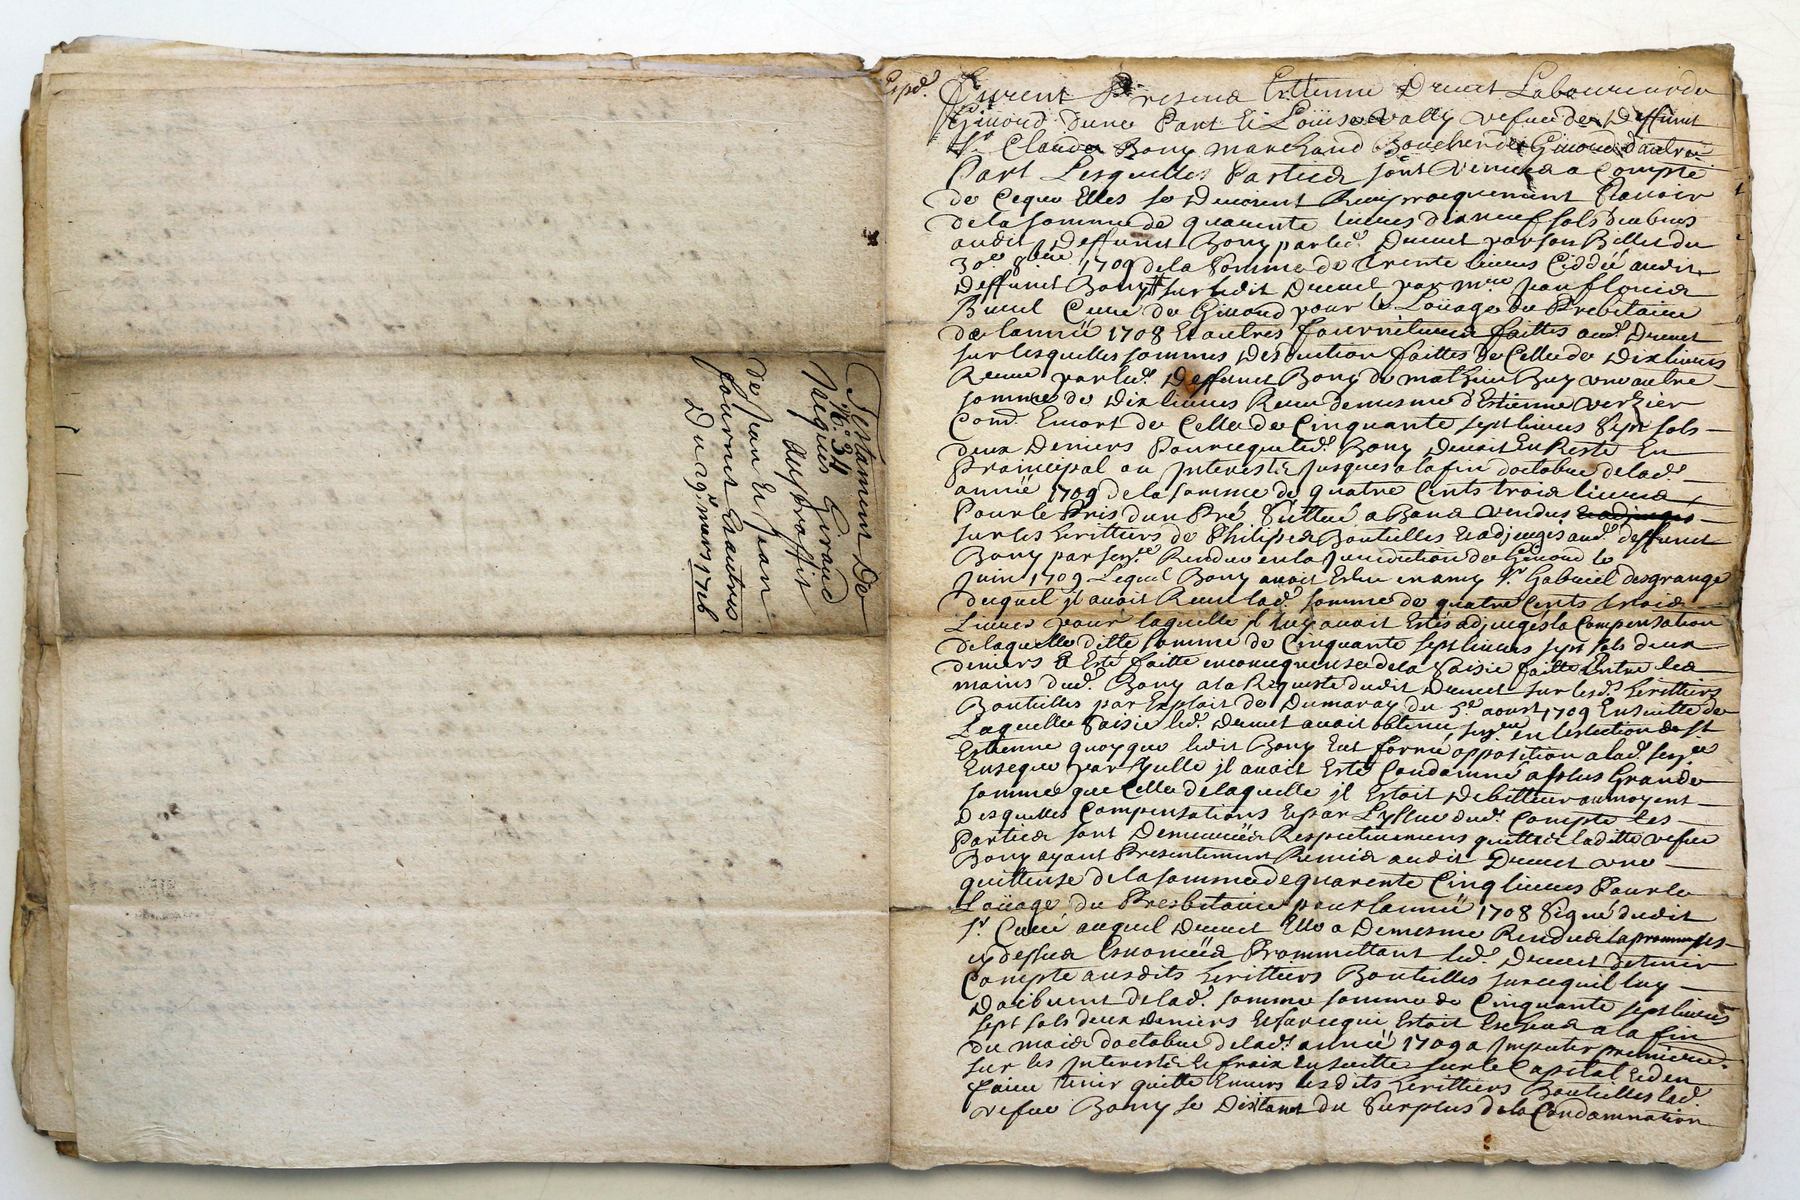 Testament De
N.º 34
Jacques Giraud
au proffit
de Jean Et Jean
fournet Et autres
Du 29.e mars 1716
Exped.
furent Presens Estienne Drevet Laboureur de
Givord dune Part Et Louise vally vefue de Deffunt
Sr. Claude Bony marchand Boucher de Givord d'autre
Part Lesquelles Parties sont venues a Compte
de Ceque Elles se Devoient Reciproquement scavoir
de la somme de quarente livres dix neuf sols deubues
audit Deffunt Bony par led. Drevet par son Billet du
30e 1709 de la somme de trente livres Ceddée audit
Deffunt Bony sur ledit Drevet par mre Jean
Cure de Givord pour le Loüage du Presbitaire
de lanneé 1708 Et autres fournitures faittes aud. Drevet
sur lesquelles sommes Deduction faittes de Celle de Dix livres
Receue par led. Deffunt Bony de mathieu Buy une autre
somme de Dix livres Receu de mesme d'Estienne Verzier
Comd. Encort de Celle de Cinquante sept livres sept sols
deux Deniers Pource que led. Bony Devoit En Reste En
Principal ou Interests Jusques a la fin d'octobre de lad.
anneé 1709 de la somme de quatre Cents trois livres
Pour le Pris d'un Pré situé a Bans vendus
sur les heritiers de Philipes Bouteilles Et adjugés aud. deffunt
Bony par sence Rendue en la Juridiction de Givord le
Juin 1709 Lequel Bony avoit Esleu en amy Sr Gabriel desgrange
duquel il avoit Receu lad. somme de quatre Cents trois
Livres pour laquelle il luy avoit Estés adjugés la Compensation
de laquelle ditte somme de Cinquante sept livres sept sols deux
deniers a Esté faitte en consequense de la saisie faitte Entre les
mains dud. Bony a la Requeste dudit Drevet sur lesd. heritiers
Bouteilles par Exploit de Dumaray du 5e aoust 1709 En suitte de
Laquelle saisie led. Drevet avoit obtenu en l'eslection de St
Estienne quoyque ledit Bony Eut formé opposition a lad. sence
Ense que par Icelle il avoit Esté Condamné a plus Grande
somme que Celle de laquelle il Estoit Debitteur au moyent
Desquelles Compensations Et par L'yssue dud. Compte les
Parties sont Demeureés Respectivement quittes ladite vefue
Bony ayant Presentement Remis audit Drevet une
quittense de la somme de quarente Cinq livres Pour le
Loüage du Presbitaire pour lanneé 1708 signé dudit
Sr. Curé auquel Drevet Elle a De mesme Rendue la promesses
cy dessus Enonceés Promettant led. Drevet de tenir
Compte ausdits heritiers Bouteilles sur ce quil luy
Doibvent de lad. somme somme de Cinquante sept livres
sept sols deux deniers Et sur ce qui Estoit Escheu a la fin
du mois d'octobre de lad. anneé 1709 a Imputer premiere.
sur les Interests Et fraix En suitte sur le Capital Et den
faire tenir quitte Envers lesdits heritiers Bouteilles lad.
vefue Bony se Distant du surplus de la Condamnation